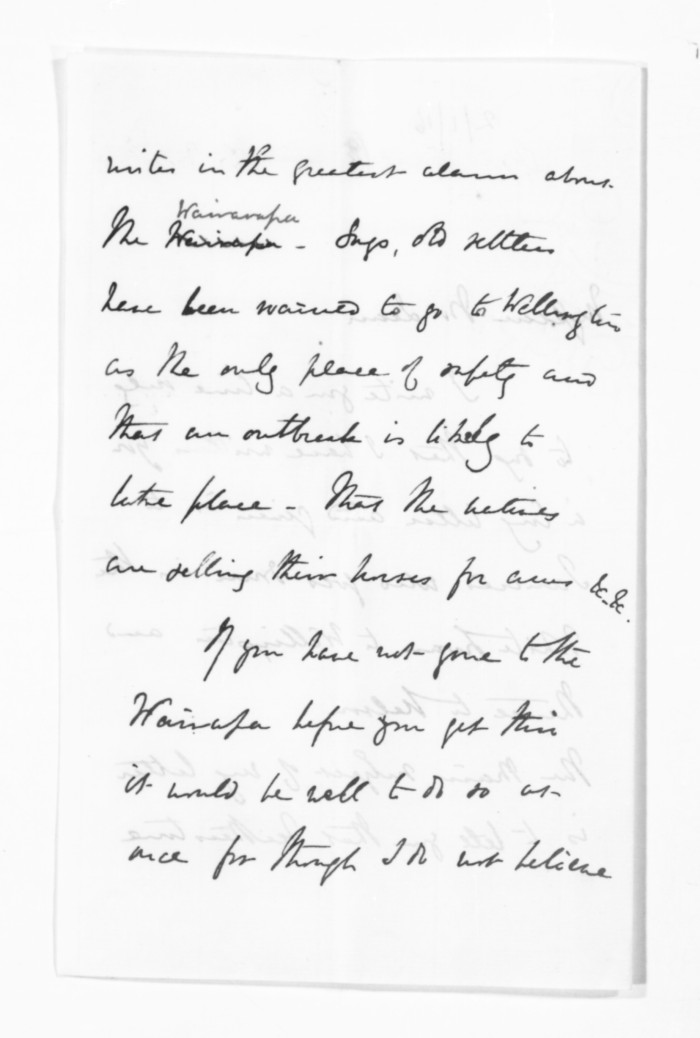 writes in the greatest alarm about
Wairarapa
the Wairarapa - Says, old settlers
have been warned to go to Wellington
as the only place of safety and
that an outbreak is likely to
take place - that the natives
are selling their horses for arms &c. &c.
If you have not gone to the
Wairarapa before you get this
it would be well to do so at
once for though I do not believe